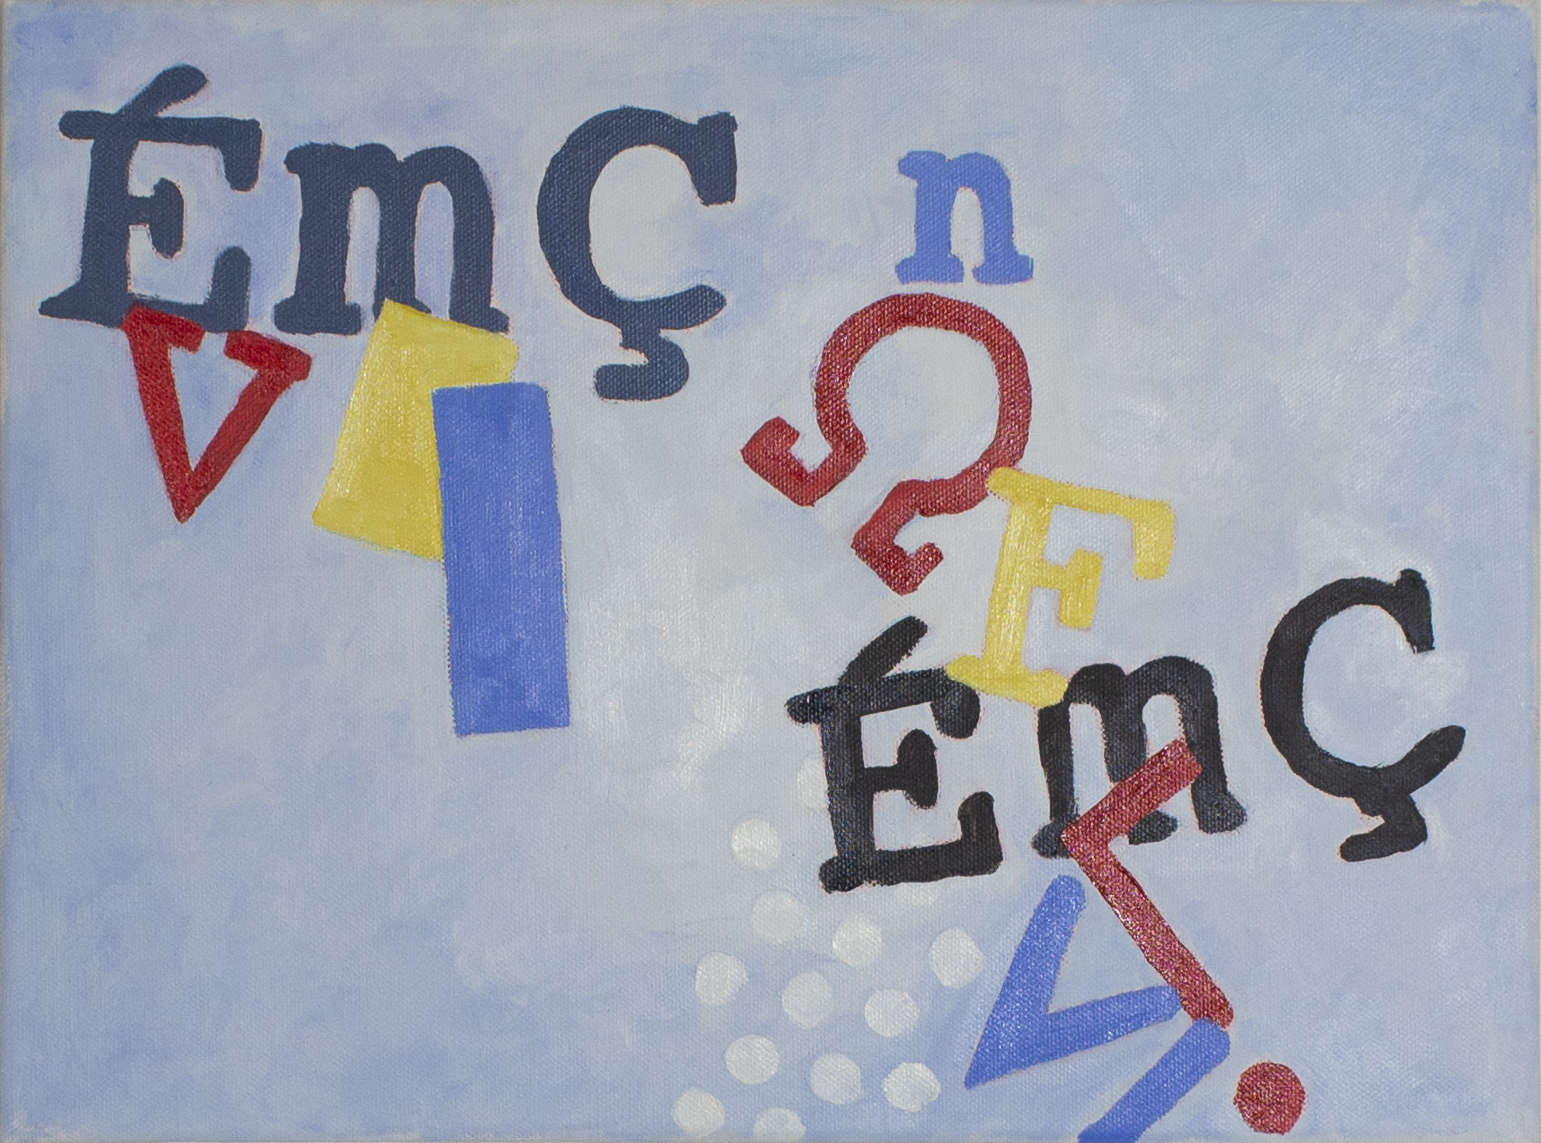 ÉmÇ
n
F
ÉmÇ